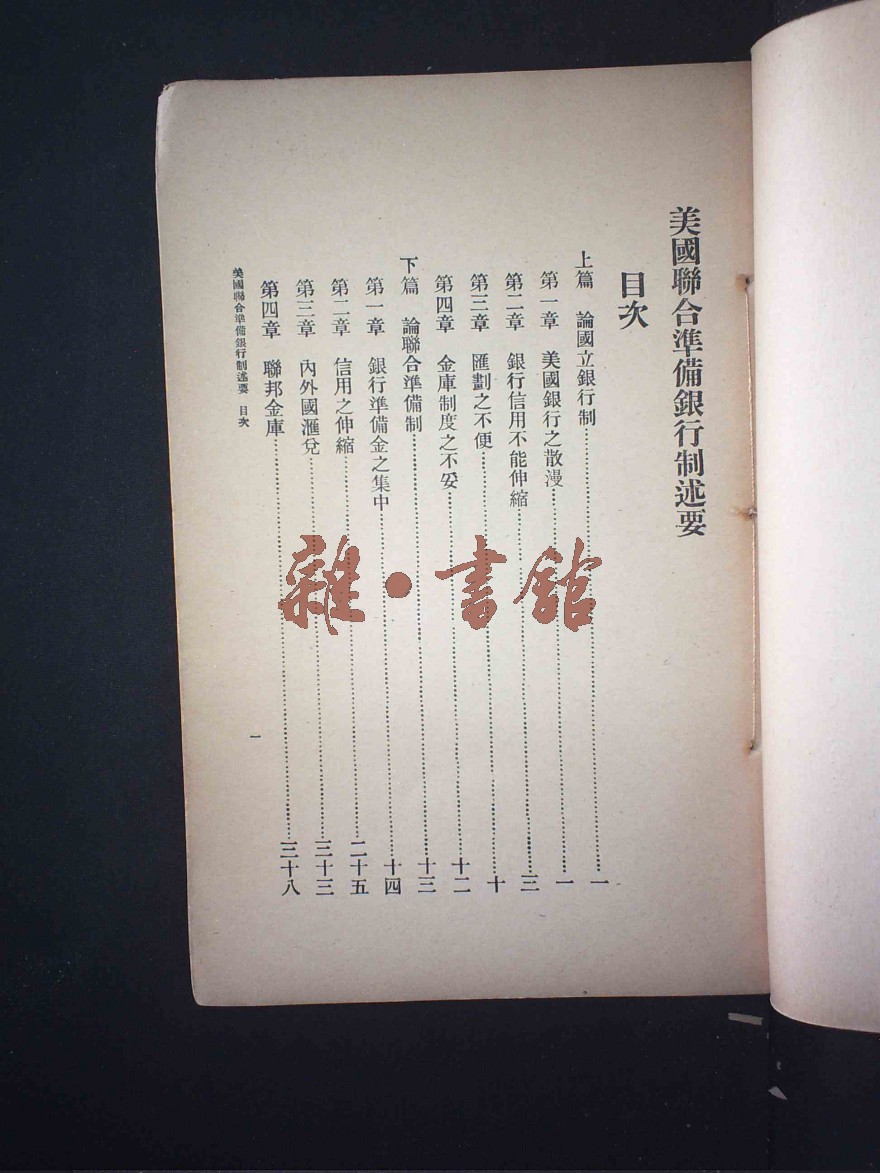 美國聯合準備銀行制述要
目次
上篇　論國立銀行制……一
第一章　美國銀行之散漫……一
第二章　銀行信用不能伸縮……三
第三章　匯劃之不便……十
第四章　金庫制度之不妥……十二
下篇　論聯合準備制……十三
第一章　銀行準備金之集中……十四
第二章　信用之伸縮……二十五
第三章　內外國滙兌……三十三
第四章　聯邦金庫……三十八
美國聯合準備銀行制述要　目次
一
雜・書館